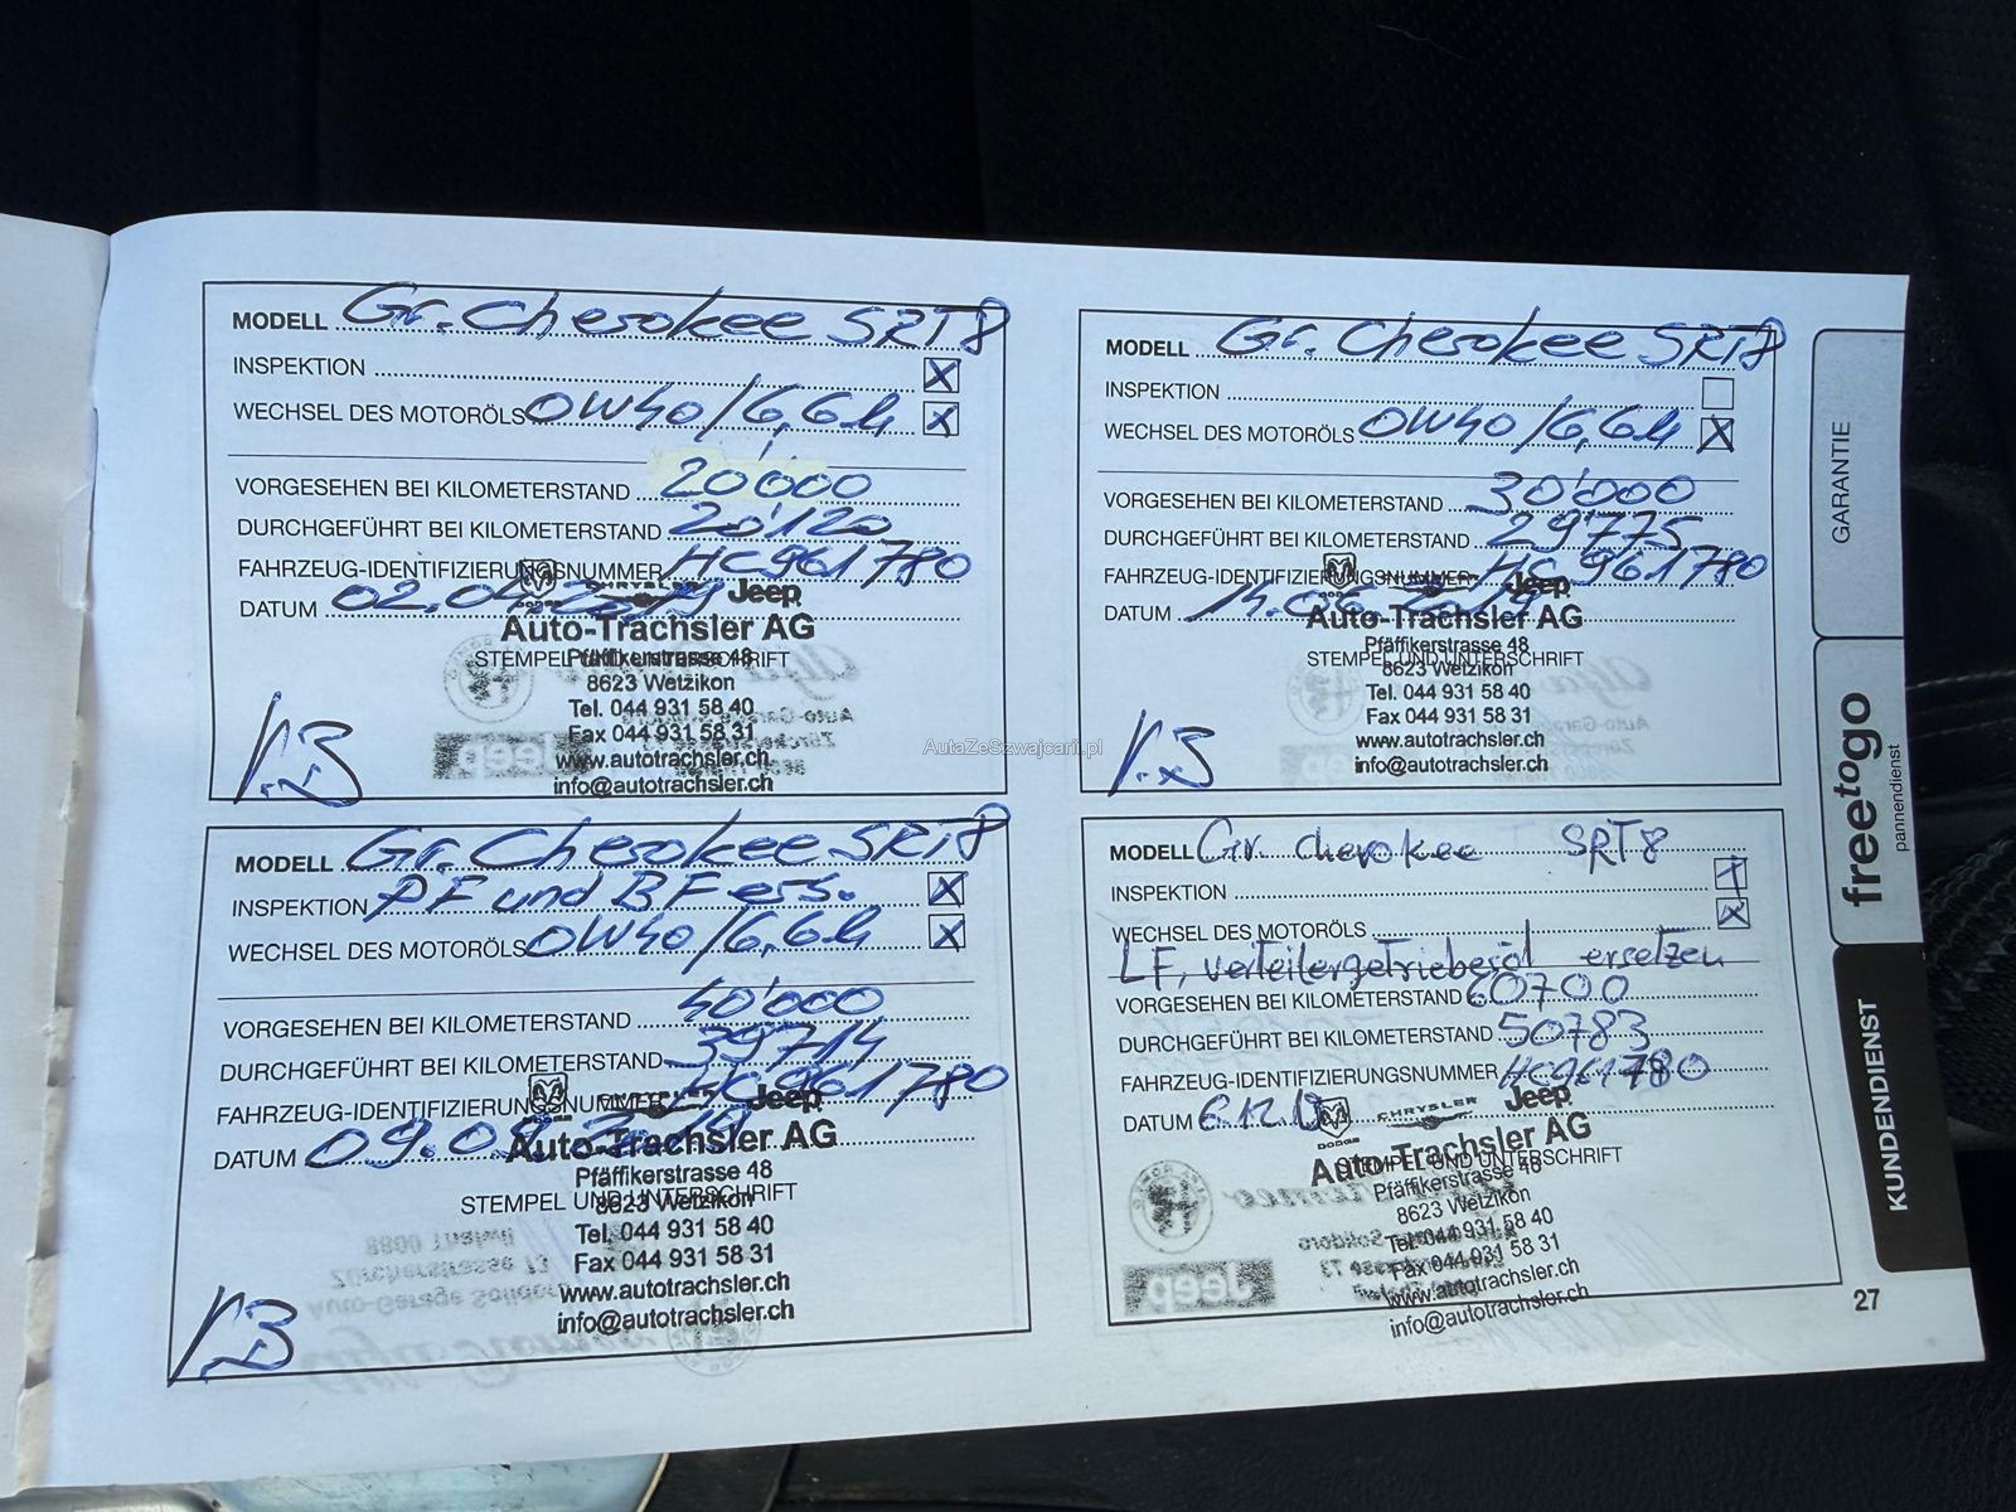 MODELL Gr. Cherokee SRT8
INSPEKTION X
WECHSEL DES MOTORÖLS 0W40/6,6L X
VORGESEHEN BEI KILOMETERSTAND 20'000
DURCHGEFÜHRT BEI KILOMETERSTAND 20'120
FAHRZEUG-IDENTIFIZIERUNGSNUMMER HC961780
DATUM 02.04.2019
DODGE CHRYSLER Jeep
Auto-Trachsler AG
STEMPEL UND UNTERSCHRIFT
Pfäffikerstrasse 48
8623 Wetzikon
Tel. 044 931 58 40
Fax 044 931 58 31
www.autotrachsler.ch
info@autotrachsler.ch
MODELL Gr. Cherokee SRT8
INSPEKTION
WECHSEL DES MOTORÖLS 0W40/6,6L X
VORGESEHEN BEI KILOMETERSTAND 30'000
DURCHGEFÜHRT BEI KILOMETERSTAND 29'775
FAHRZEUG-IDENTIFIZIERUNGSNUMMER HC961780
DATUM 14.06.2019
DODGE Jeep
Auto-Trachsler AG
Pfäffikerstrasse 48
STEMPEL UND UNTERSCHRIFT
8623 Wetzikon
Tel. 044 931 58 40
Fax 044 931 58 31
www.autotrachsler.ch
info@autotrachsler.ch
AutaZeSzwajcarii.pl
MODELL Gr. Cherokee SRT8
INSPEKTION PF und BF ers. X
WECHSEL DES MOTORÖLS 0W40/6,6L X
VORGESEHEN BEI KILOMETERSTAND 40'000
DURCHGEFÜHRT BEI KILOMETERSTAND 39'714
FAHRZEUG-IDENTIFIZIERUNGSNUMMER HC961780
DATUM 09.09.2019
Jeep
Auto-Trachsler AG
Pfäffikerstrasse 48
STEMPEL UND UNTERSCHRIFT
8623 Wetzikon
Tel. 044 931 58 40
Fax 044 931 58 31
www.autotrachsler.ch
info@autotrachsler.ch
MODELL Gr. Cherokee SRT8
INSPEKTION X
WECHSEL DES MOTORÖLS X
LF, verteilergetriebeöl ersetzen
VORGESEHEN BEI KILOMETERSTAND 60700
DURCHGEFÜHRT BEI KILOMETERSTAND 50783
FAHRZEUG-IDENTIFIZIERUNGSNUMMER HC961780
DATUM 6.12.
DODGE CHRYSLER Jeep
Auto-Trachsler AG
STEMPEL UND UNTERSCHRIFT
Pfäffikerstrasse 48
8623 Wetzikon
Tel. 044 931 58 40
Fax 044 931 58 31
www.autotrachsler.ch
info@autotrachsler.ch
GARANTIE
freetogo
pannendienst
KUNDENDIENST
27